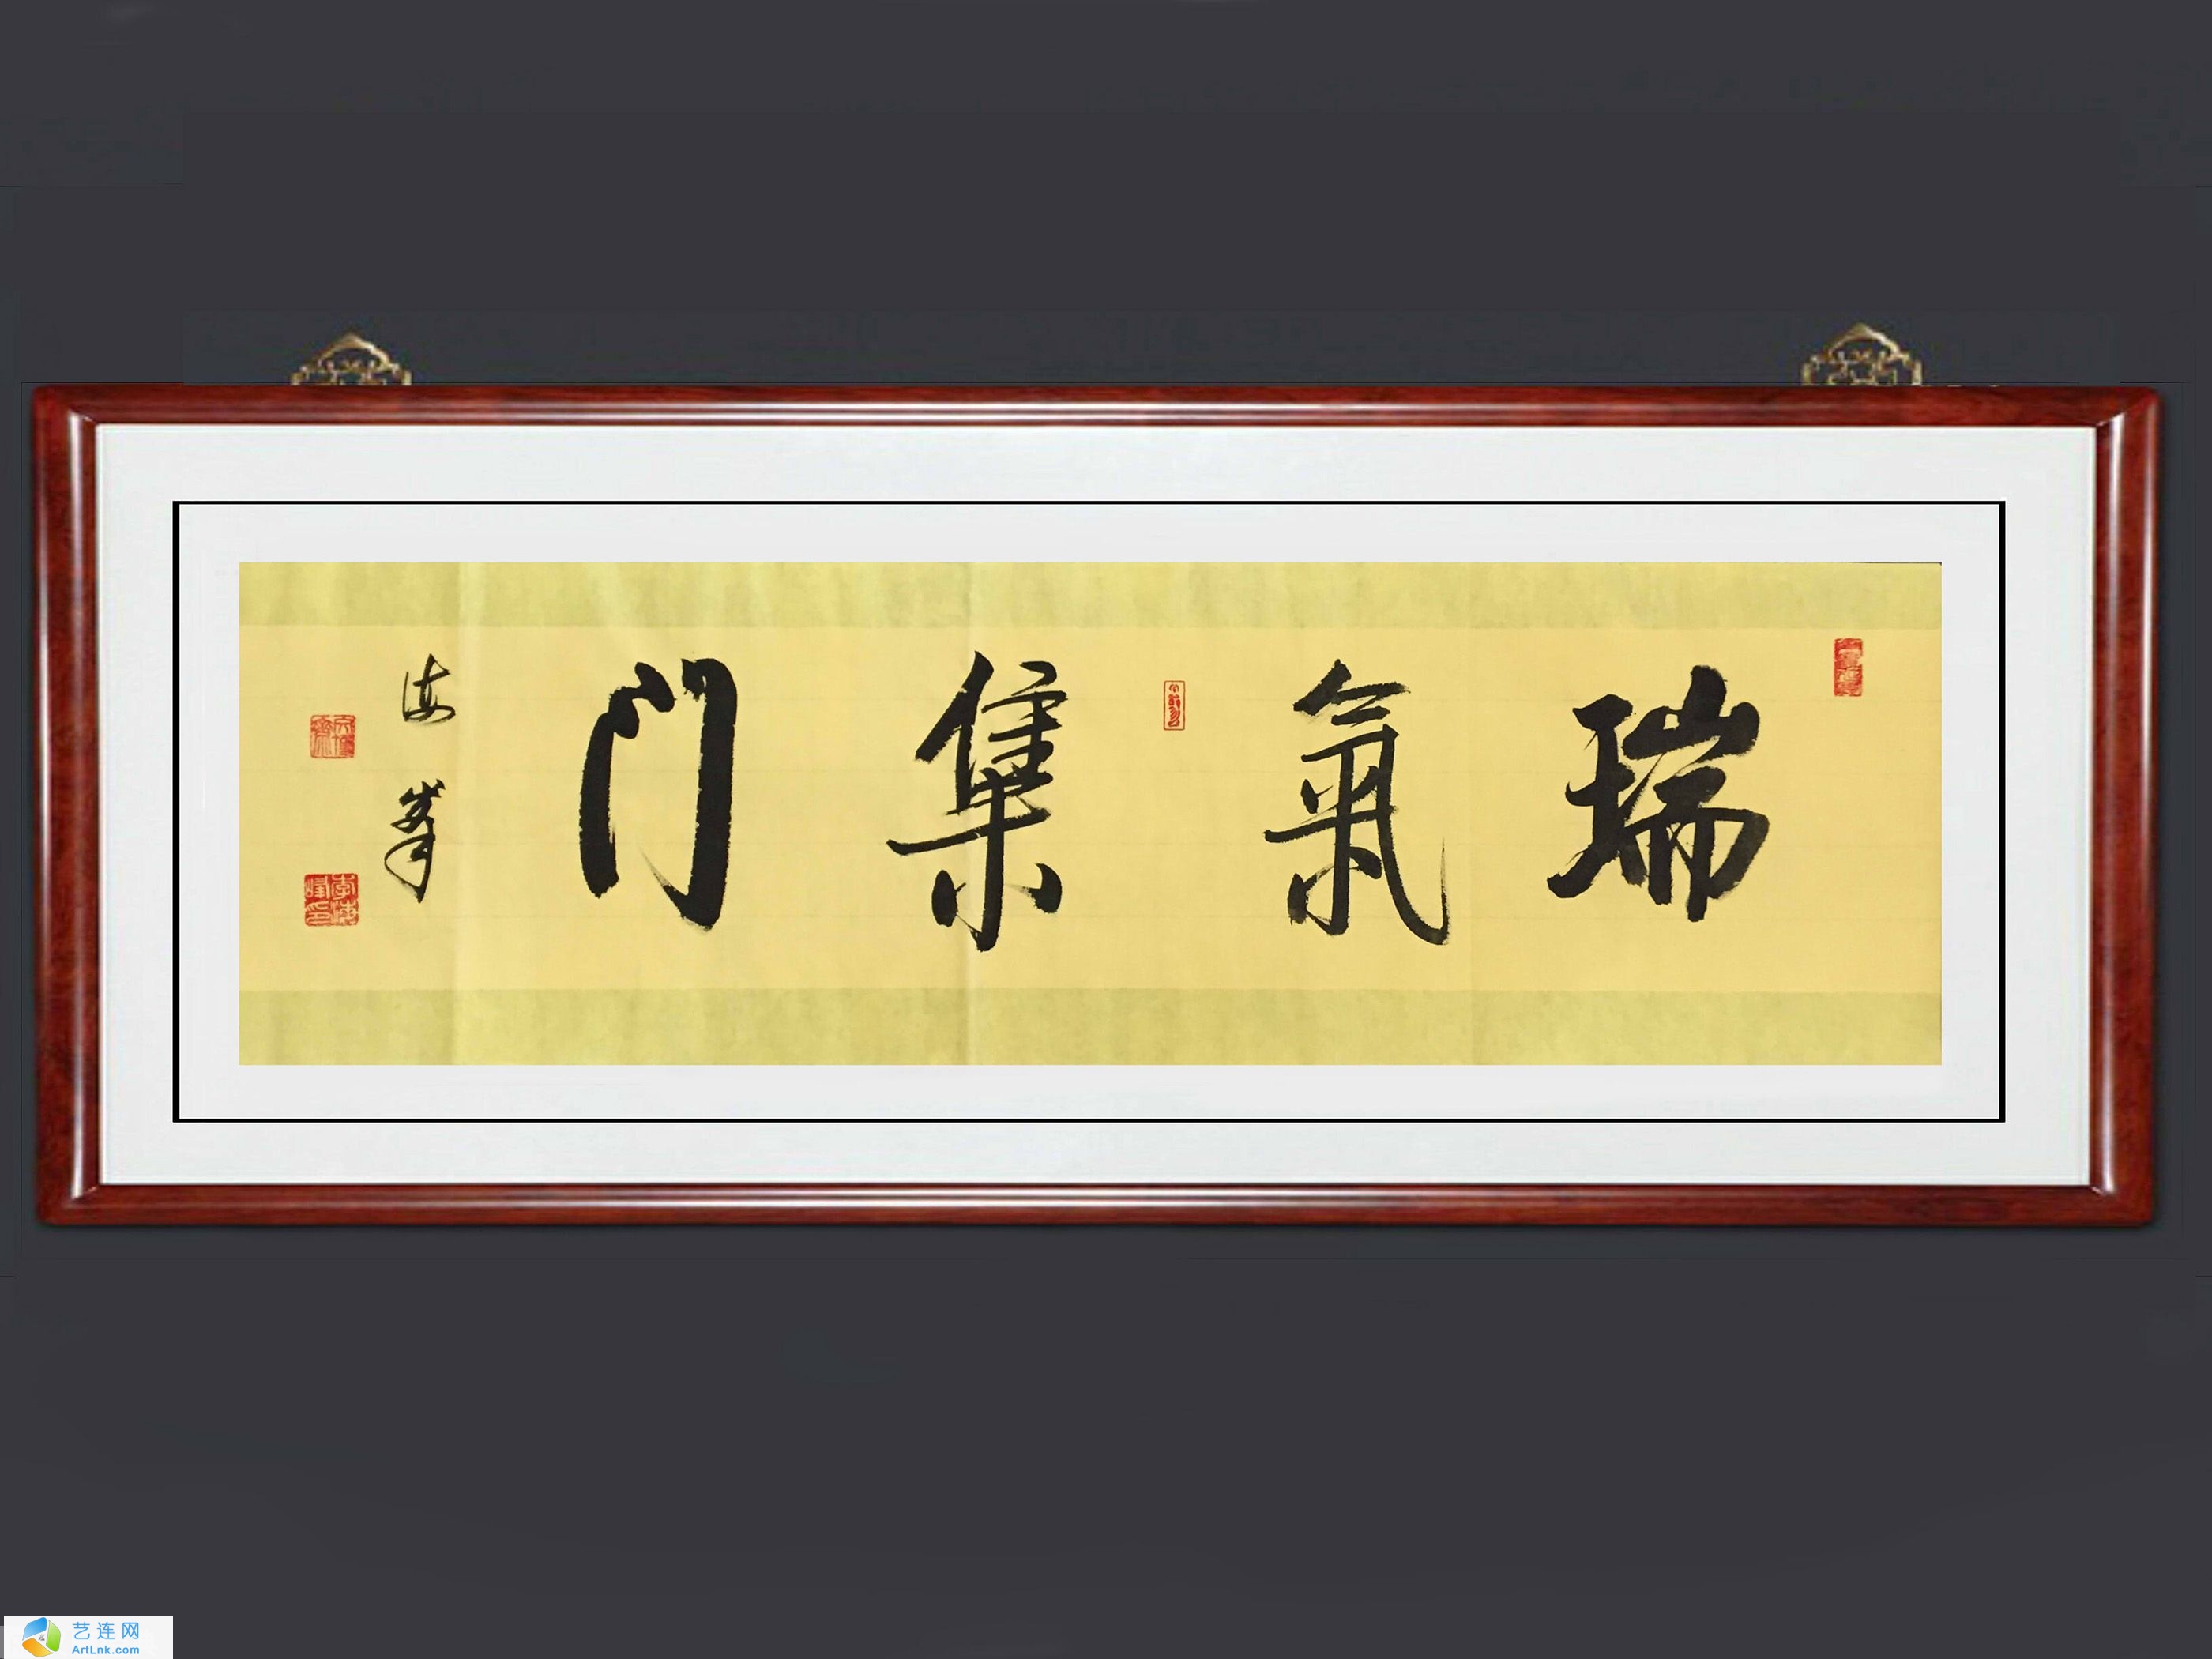 瑞氣集门
海峯
李海峰印
艺连网
ArtLnk.com